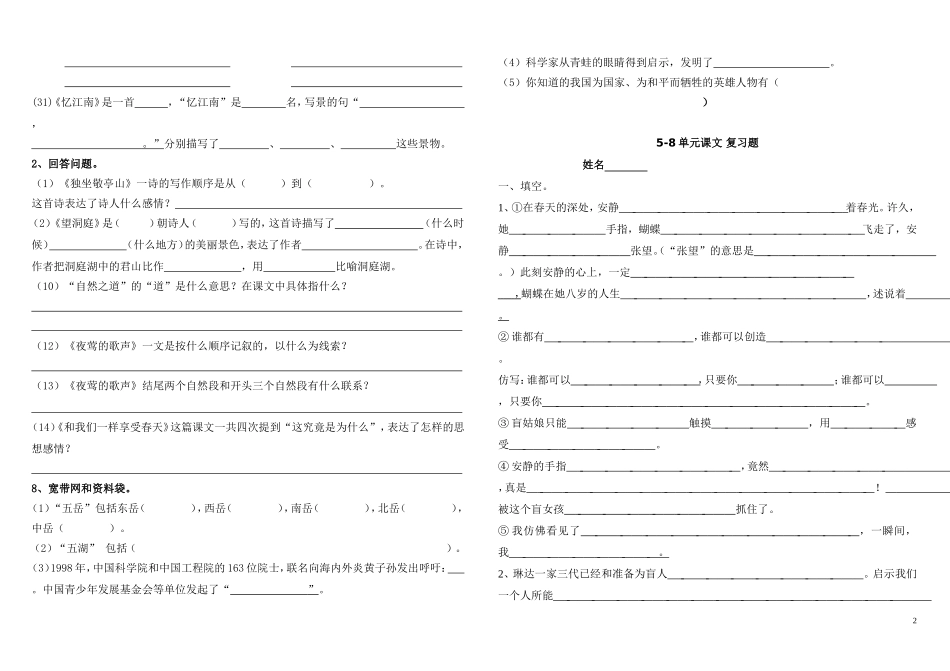 (31)《忆江南》是一首______，“忆江南”是________名，写景的句“____________________
，
______________________。”分别描写了________、________、__________这些景物。
2、回答问题。
（1）《独坐敬亭山》一诗的写作顺序是从（      ）到（          ）。
这首诗表达了诗人什么感情？____________________
（2）《望洞庭》是（      ）朝诗人（      ）写的，这首诗描写了________________（什么时
候）______________（什么地方）的美丽景色，表达了作者____________________。在诗中，
作者把洞庭湖中的君山比作______________，用_____________比喻洞庭湖。
（10）“自然之道”的“道”是什么意思？在课文中具体指什么？
（12）《夜莺的歌声》一文是按什么顺序记叙的，以什么为线索？
（13）《夜莺的歌声》结尾两个自然段和开头三个自然段有什么联系？
（14)《和我们一样享受春天》这篇课文一共四次提到“这究竟是为什么”，表达了怎样的思
想感情？
8、宽带网和资料袋。
（1）“五岳”包括东岳（        ），西岳（        ），南岳（        ），北岳（        ），
中岳（        ）。
（2）“五湖” 包括（                    ）。
（3）1998 年，中国科学院和中国工程院的 163 位院士，联名向海内外炎黄子孙发出呼吁：___
。中国青少年发展基金会等单位发起了“______________”。
（4）科学家从青蛙的眼睛得到启示，发明了____________________。
（5）你知道的我国为国家、为和平而牺牲的英雄人物有（
）
5-8 单元课文 复习题
姓名________
一、填空。
1、①在春天的深处，安静____________________着春光。许久，
她________________手指，蝴蝶____________________飞走了，安
静____________________张望。（“张望”的意思是____________________
。）此刻安静的心上，一定____________________
___，蝴蝶在她八岁的人生____________________，述说着________
。
② 谁都有____________________，谁都可以创造____________________
。
仿写：谁都可以____________________，只要你______________；谁都可以__________
，只要你____________________。
③ 盲姑娘只能____________________触摸________________，用____________感
受____________________。
④ 安静的手指____________________，竟然____________________
，真是____________________！____________
被这个盲女孩____________________抓住了。
⑤ 我仿佛看见了____________________，一瞬间，
我____________________。
2、琳达一家三代已经和准备为盲人____________________。启示我们
一个人所能____________________
2